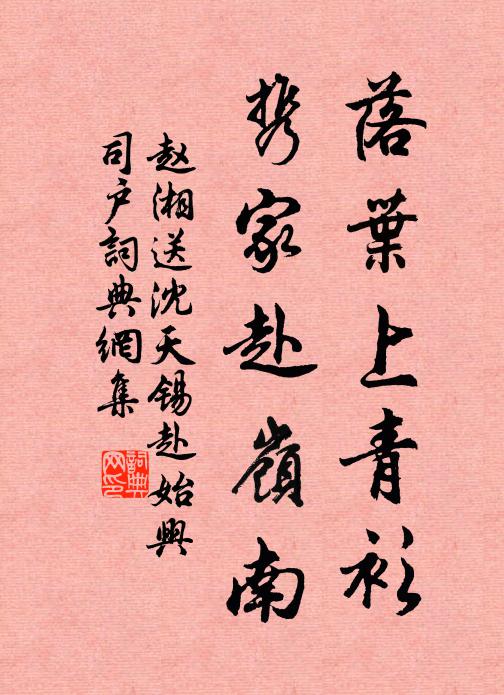 落葉上青衫
携家赴嶺南
赵湘送沈天锡赴始興
司户詞典網集
詞典
网印